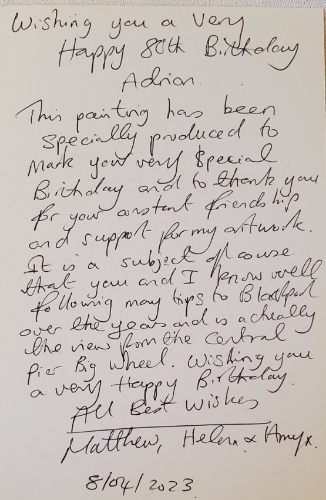 Wishing you a Very
Happy 80th Birthday
Adrian.
This painting has been
specially produced to
mark your very special
Birthday and to thank you
for your constant friendship
and support for my artwork.
It is a subject of course
that you and I know well
following may tips to Blackpool
over the years and is actually
the view from the Central
Pier Big Wheel. Wishing you
a very Happy Birthday.
All Best Wishes
Matthew, Helen & Amy x.
8/04/2023